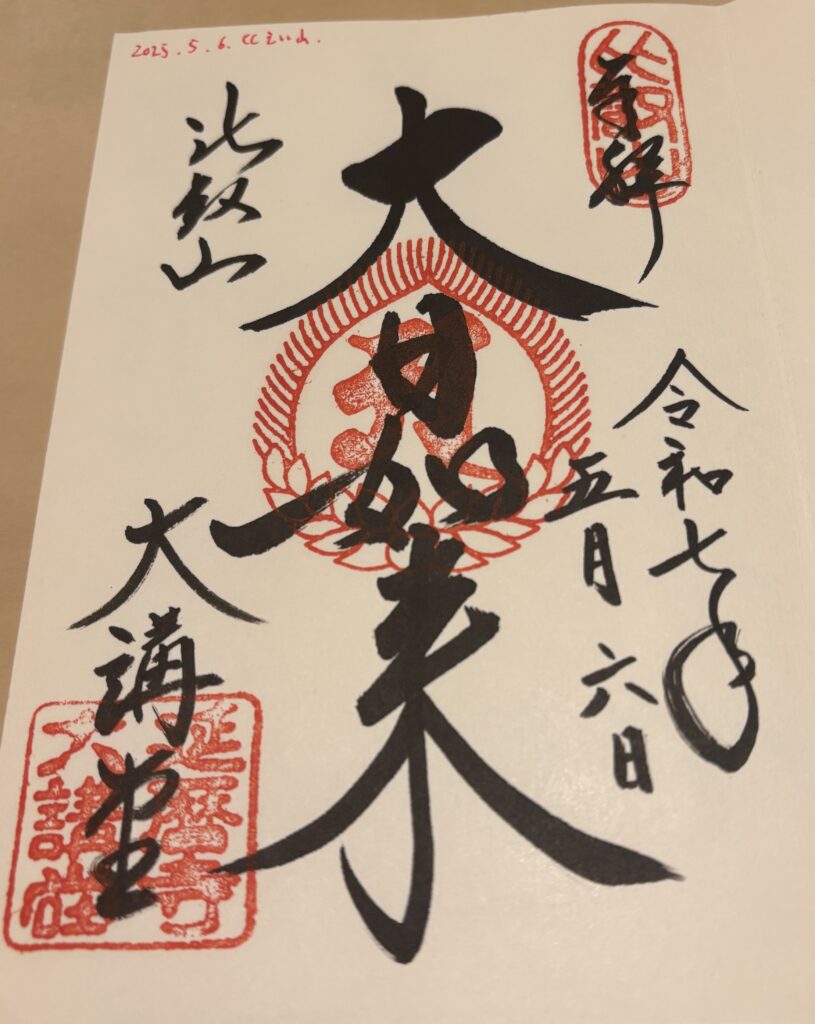 2025.5.6. ひえい山.
奉拝
令和七年
五月六日
大日如来
比叡山
大講堂
延暦寺
大講堂